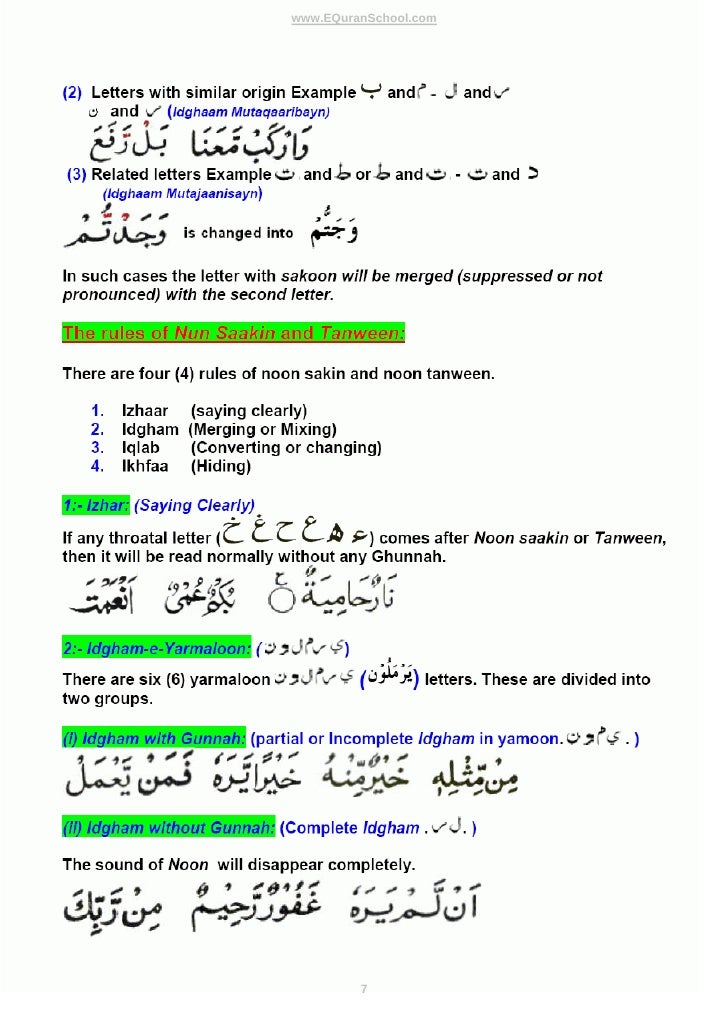 www.EQuranSchool.com
(2) Letters with similar origin Example ب and م - ل and ر
ن and ر (Idghaam Mutaqaaribayn)
وَارْكَبْ مَّعَنَا بَلْ رَّفَعَ
(3) Related letters Example ت and ط or ط and ت - ت and د
(Idghaam Mutajaanisayn)
وَجَدْتُّمْ is changed into وَجَتُّمْ
In such cases the letter with sakoon will be merged (suppressed or not
pronounced) with the second letter.
The rules of Nun Saakin and Tanween:
There are four (4) rules of noon sakin and noon tanween.
1. Izhaar (saying clearly)
2. Idgham (Merging or Mixing)
3. Iqlab (Converting or changing)
4. Ikhfaa (Hiding)
1:- Izhar: (Saying Clearly)
If any throatal letter (ء ه ع ح غ خ) comes after Noon saakin or Tanween,
then it will be read normally without any Ghunnah.
نَارٌ حَامِيَةٌ بُكْمٌ عُمْىٌ اَنْعَمْتَ
2:- Idgham-e-Yarmaloon: (ي ر م ل و ن)
There are six (6) yarmaloon ي ر م ل و ن (يَرْمَلُوْن) letters. These are divided into
two groups.
(i) Idgham with Gunnah: (partial or Incomplete Idgham in yamoon. ي م و ن . )
مِنْ مِّثْلِهٖ خَيْرٌ مِّنْهُ خَيْرًا يَّرَهٗ فَمَنْ يَّعْمَلْ
(ii) Idgham without Gunnah: (Complete Idgham . ل ر . )
The sound of Noon will disappear completely.
اَنْ لَّمْ يَرَهٗ غَفُوْرٌ رَّحِيْمٌ مِنْ رَّبِّكَ
7